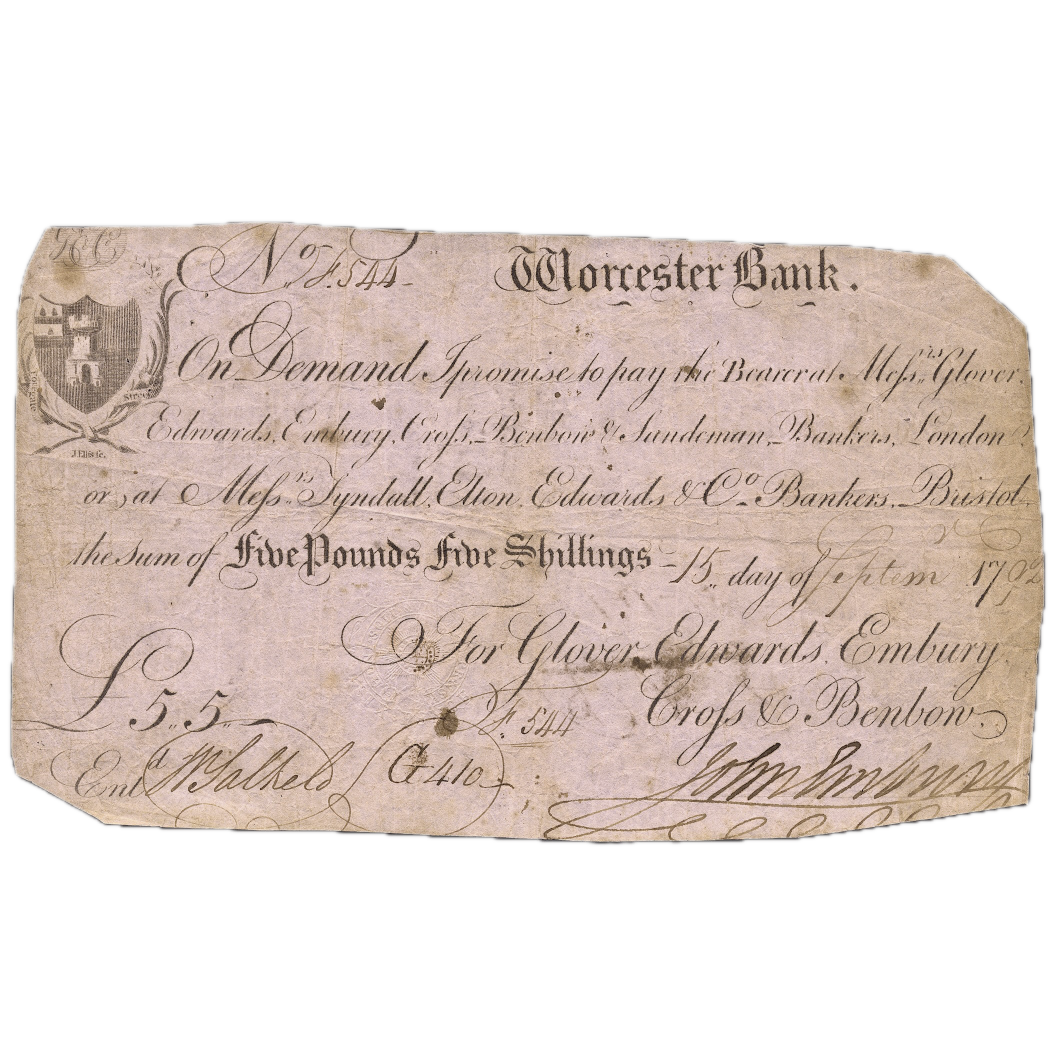 GEC
No. F.544
Worcester Bank.
On Demand I promise to pay the Bearer at Meſsrs. Glover,
Foregate Street
Edwards, Embury, Croſs, Benbow & Sandeman, Bankers, London
J. Ellis sc.
or, at Meſsrs. Tyndall, Elton, Edwards & Co. Bankers, Bristol,
the sum of Five Pounds Five Shillings - 15 day of Septemr 179
For Glover, Edwards, Embury,
Croſs & Benbow,
£ 5.. 5..
F. 544
Entd W Salkeld
G 410
John Embury